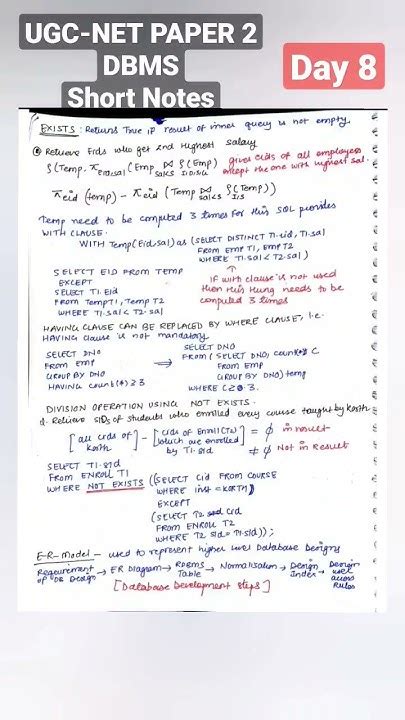 UGC-NET PAPER 2
DBMS
Short Notes
Day 8
EXISTS : Returns True if result of inner query is not empty.
Retrieve Eids who get 2nd Highest salary
ρ(Temp, π eid,sal (Emp ⋈ sal<S ρ(Emp) I,D,N,G,S gives eids of all employees
except the one with highest sal.
π eid (temp) - π eid (Temp ⋈ sal<S ρ(Temp)) I,S
Temp need to be computed 3 times for this SQL provides
WITH CLAUSE.
WITH Temp(Eid,sal) as (SELECT DISTINCT T1.eid, T1.sal
FROM EMP T1, EMP T2
WHERE T1.sal < T2.sal)
SELECT EID FROM TEMP
EXCEPT
SELECT T1.Eid
FROM TEMP T1, Temp T2
WHERE T1.sal < T2.sal
↑
IF with clause is not used
then this thing needs to be
computed 3 times
HAVING CLAUSE CAN BE REPLACED BY WHERE CLAUSE, i.e.
HAVING clause is not mandatory.
SELECT DNO
FROM EMP
GROUP BY DNO
HAVING count(*) ≥ 3
→
SELECT DNO
FROM (SELECT DNO, count(*) C
FROM Emp
GROUP BY DNO) temp
WHERE C ≥ 3.
DIVISION OPERATION USING NOT EXISTS.
Q. Retrieve SIDs of students who enrolled every course taught by Korth
[all cids of Korth] - [cids of Enroll (T2) which are enrolled by T1.sid] = ϕ in result
≠ ϕ Not in Result
SELECT T1.sid
FROM ENROLL T1
WHERE NOT EXISTS ((SELECT Cid FROM COURSE
WHERE inst = KORTH)
EXCEPT
(SELECT T2. cid
FROM ENROLL T2
WHERE T2.sid = T1.sid));
E-R-Model - used to represent higher level Database Designs
Requirement of DB Design → ER Diagram → RDBMS Table → Normalisation → Design Index → Design user access Rules
[Database Development steps]